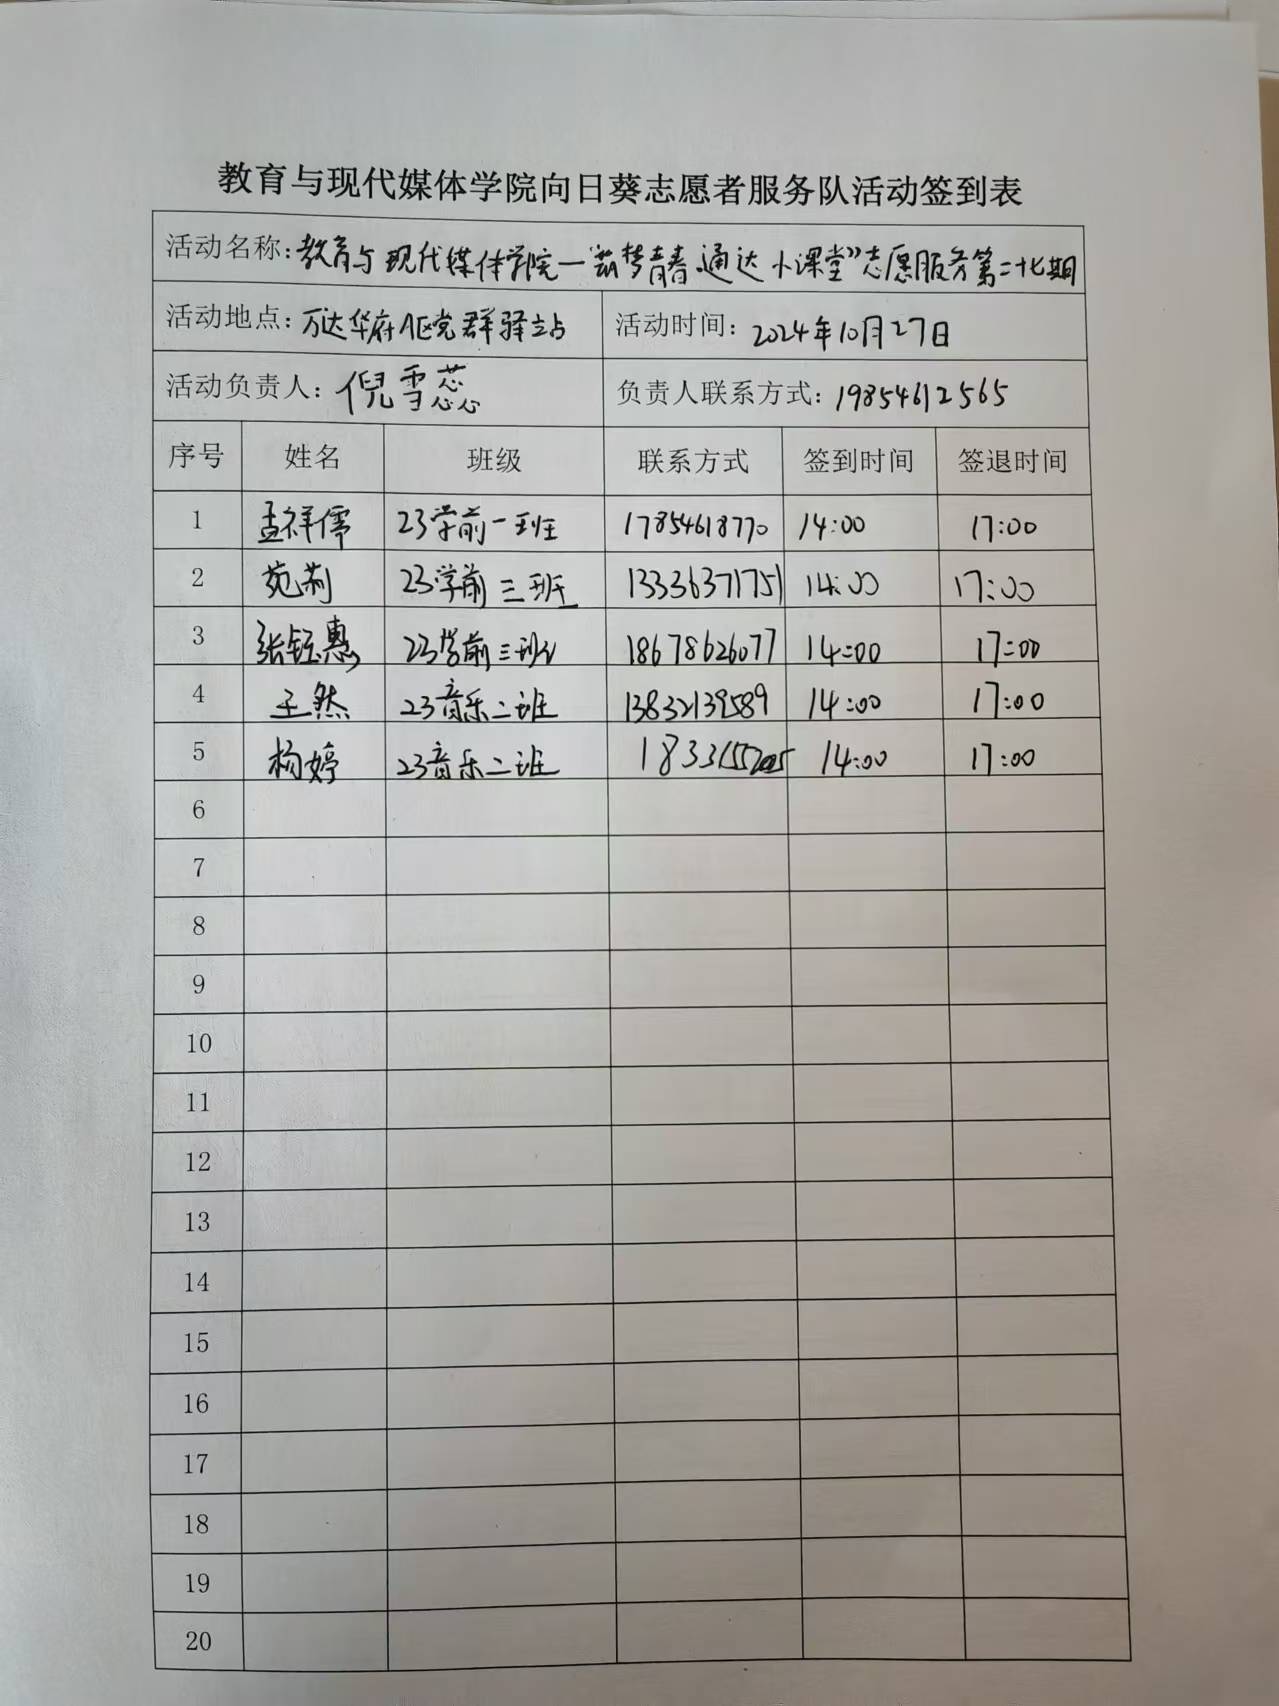 教育与现代媒体学院向日葵志愿者服务队活动签到表
活动名称:教育与现代媒体学院—“筑梦青春 通达小课堂”志愿服务第二十七期
活动地点:万达华府A区党群驿站 活动时间:2024年10月27日
活动负责人:倪雪蕊 负责人联系方式:19854612565
序号 姓名 班级 联系方式 签到时间 签退时间
1 孟祥儒 23学前一班 17854618770 14:00 17:00
2 苑莉 23学前三班 13336371751 14:00 17:00
3 张钰惠 23学前三班 18678626077 14:00 17:00
4 王然 23音乐二班 13832139589 14:00 17:00
5 杨婷 23音乐二班 14:00 17:00
6
7
8
9
10
11
12
13
14
15
16
17
18
19
20